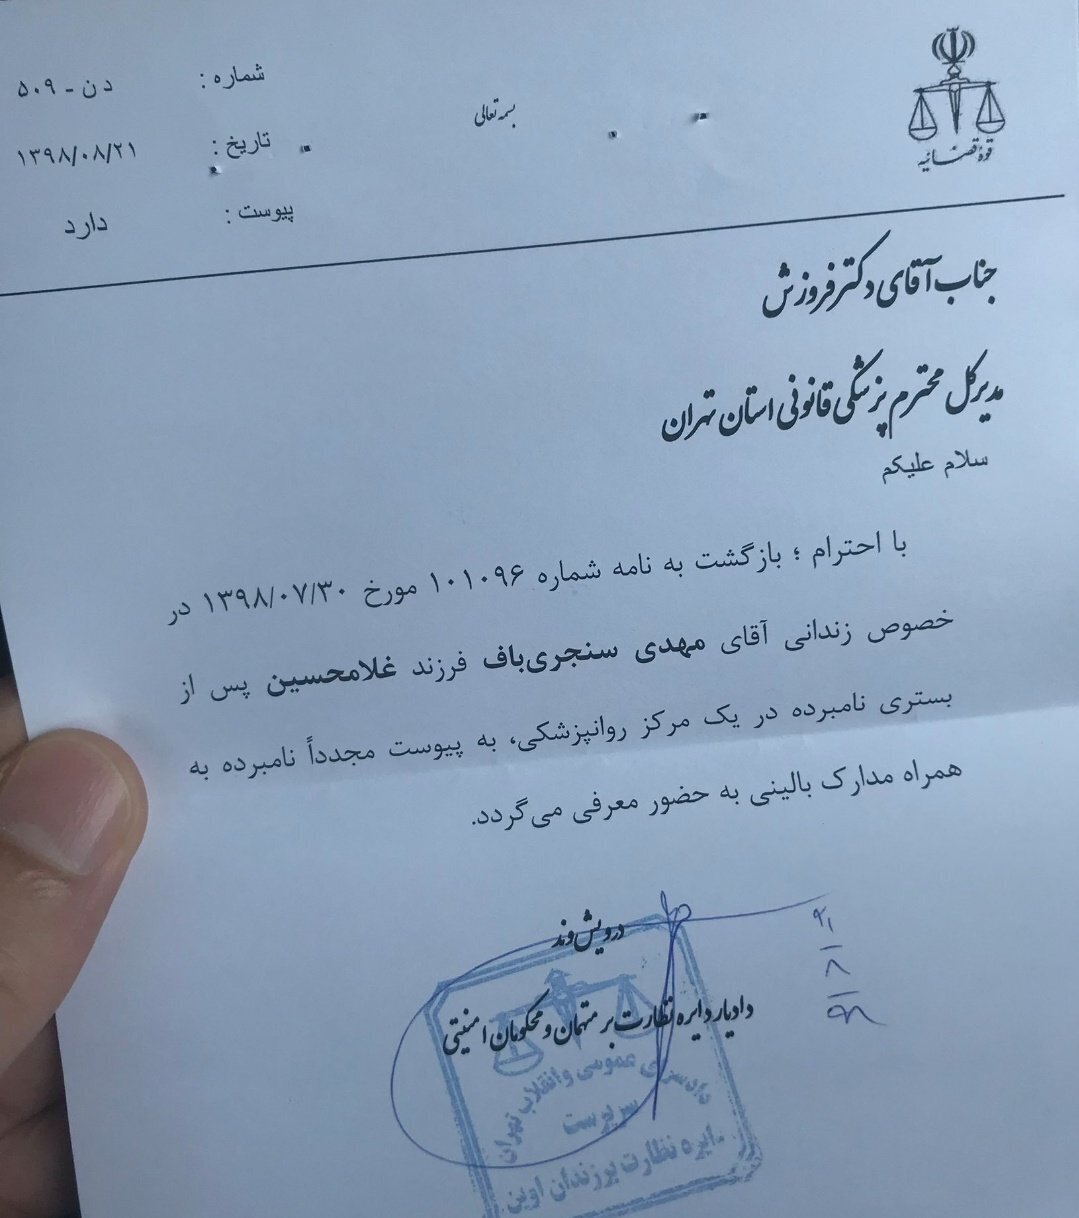 قوه قضائیه
بسمه تعالی
شماره : دن - ۵۰۹
تاریخ : ۱۳۹۸/۰۸/۲۱
پیوست : دارد
جناب آقای دکتر فروزش
مدیرکل محترم پزشکی قانونی استان تهران
سلام علیکم
با احترام ؛ بازگشت به نامه شماره ۱۰۱۰۹۶ مورخ ۱۳۹۸/۰۷/۳۰ در
خصوص زندانی آقای مهدی سنجری‌باف فرزند غلامحسین پس از
بستری نامبرده در یک مرکز روانپزشکی، به پیوست مجدداً نامبرده به
همراه مدارک بالینی به حضور معرفی می‌گردد.
درویش‌وند
دادیار دایره نظارت بر متهمان و محکومان امنیتی
دادسرای عمومی و انقلاب تهران
سرپرست
دایره نظارت بر زندان اوین